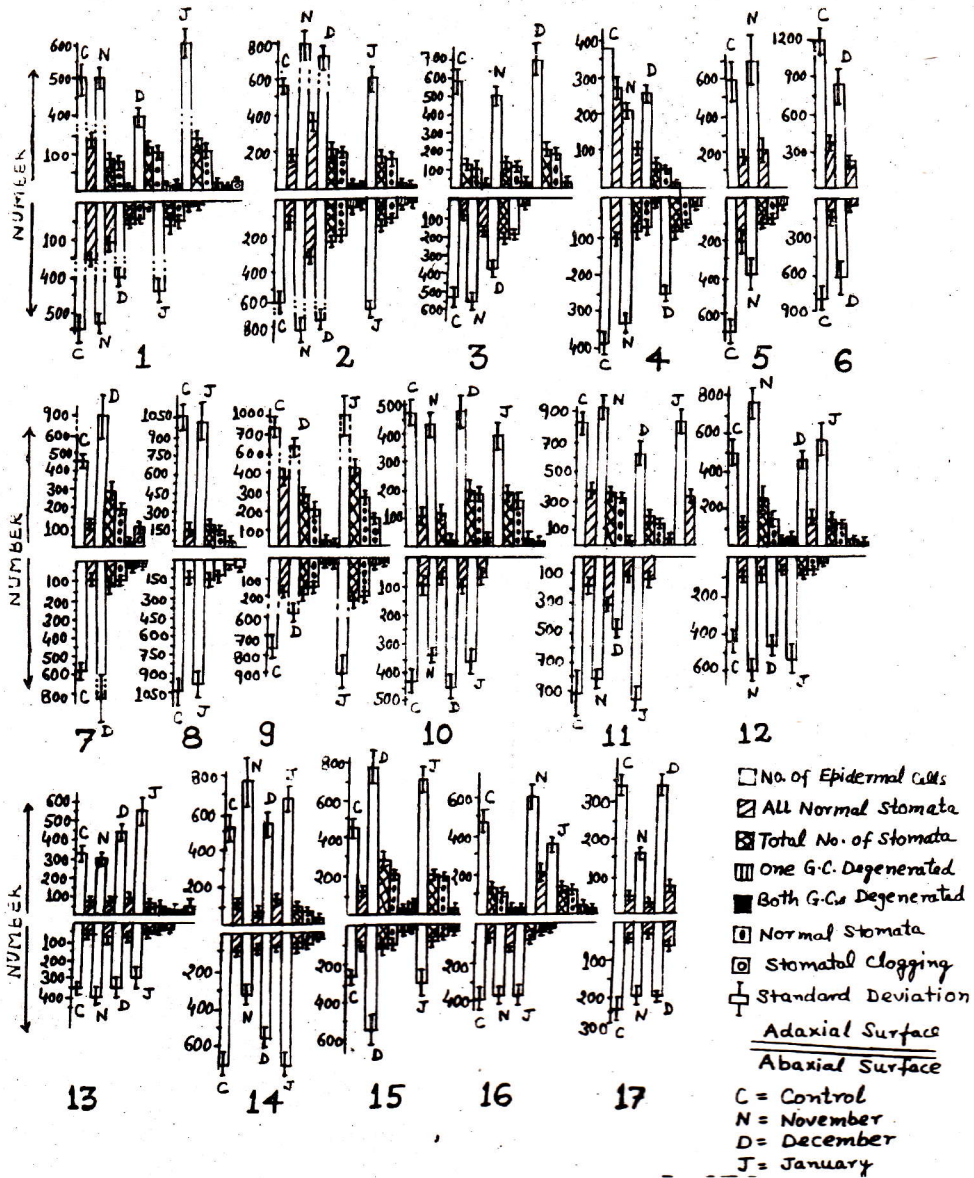 NUMBER
600
500
100
C
N
J
100
400
500
C
N
D
J
1
800
600
400
200
C
N
D
J
200
400
600
800
C
N
D
J
2
700
600
500
400
300
200
100
C
N
D
100
200
300
400
500
600
C
N
D
3
400
300
200
100
C
N
D
100
200
300
400
C
N
D
4
600
400
200
C
N
200
400
600
C
N
5
1200
900
600
300
C
D
300
600
900
C
D
6
NUMBER
900
700
600
500
400
300
200
100
C
D
100
200
300
400
500
600
800
C
D
7
1050
900
750
600
450
300
150
C
J
150
300
450
600
750
900
1050
C
J
8
1000
800
400
300
200
100
C
D
J
100
200
300
400
700
800
900
C
D
J
9
500
400
300
200
100
C
N
D
J
100
200
300
400
500
C
N
D
J
10
900
700
500
300
100
C
N
D
J
100
300
500
700
900
C
N
D
J
11
800
600
400
200
C
N
D
J
200
400
600
C
N
D
J
12
NUMBER
600
500
400
300
200
100
C
N
D
J
100
200
300
400
C
N
D
J
13
800
600
400
200
C
N
D
J
200
400
600
C
N
D
J
14
800
600
400
200
C
D
J
200
400
600
C
D
J
15
600
400
200
C
N
J
200
400
C
N
J
16
300
200
100
C
N
D
100
200
300
C
N
D
17
No. of Epidermal Cells
All Normal Stomata
Total No. of Stomata
One G.C. Degenerated
Both G.Cs Degenerated
Normal Stomata
Stomatal Clogging
Standard Deviation
Adaxial Surface
Abaxial Surface
C = Control
N = November
D = December
J = January